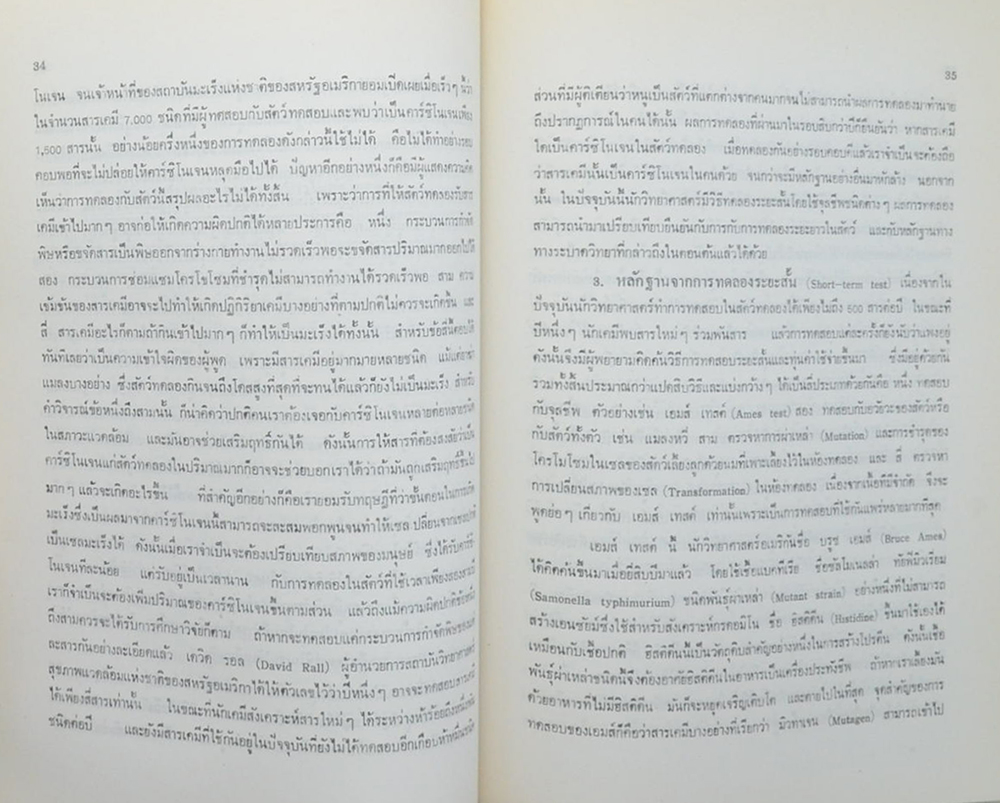 34
โนเจน จนเจ้าหน้าที่ของสถาบันมะเร็งแห่งชาติของสหรัฐอเมริกายอมเปิดเผยเมื่อเร็วๆ นี้ว่า
ในจำนวนสารเคมี 7,000 ชนิดที่มีผู้ทดสอบกับสัตว์ทดสอบและพบว่าเป็นคาร์ซิโนเจนเพียง
1,500 สารนั้น อย่างน้อยครึ่งหนึ่งของการทดลองดังกล่าวนี้ใช้ไม่ได้ คือไม่ได้ทำอย่างรอบ
คอบพอที่จะไม่ปล่อยให้คาร์ซิโนเจนหลุดมือไปได้ ปัญหาอีกอย่างหนึ่งก็คือมีผู้แสดงความคิด
เห็นว่าการทดลองกับสัตว์นี้สรุปผลอะไรไม่ได้ทั้งสิ้น เพราะว่าการที่ให้สัตว์ทดลองรับสาร
เคมีเข้าไปมากๆ อาจก่อให้เกิดความผิดปกติได้หลายประการคือ หนึ่ง กระบวนการกำจัด
พิษหรือขจัดสารเป็นพิษออกจากร่างกายทำงานไม่รวดเร็วพอจะขจัดสารปริมาณมากออกไปได้
สอง กระบวนการซ่อมแซมโครโมโซมที่ชำรุดไม่สามารถทำงานได้รวดเร็วพอ สาม ความ
เข้มข้นของสารเคมีอาจจะไปทำให้เกิดปฏิกิริยาเคมีบางอย่างที่ตามปกติไม่ควรจะเกิดขึ้น และ
สี่ สารเคมีอะไรก็ตามถ้ากินเข้าไปมากๆ ก็ทำให้เป็นมะเร็งได้ทั้งนั้น สำหรับข้อสี่นี้ตอบได้
ทันทีเลยว่าเป็นความเข้าใจผิดของผู้พูด เพราะมีสารเคมีอยู่มากมายหลายชนิด แม้แต่ยาฆ่า
แมลงบางอย่าง ซึ่งสัตว์ทดลองกินจนถึงโดสสูงที่สุดที่จะทนได้แล้วก็ยังไม่เป็นมะเร็ง สำหรับ
คำวิจารณ์ข้อหนึ่งถึงสามนั้น ก็น่าคิดว่าปกติคนเราต้องเจอกับคาร์ซิโนเจนหลายต่อหลายชนิด
ในสภาวะแวดล้อม และมันอาจช่วยเสริมฤทธิ์กันได้ ดังนั้นการให้สารที่ต้องสงสัยว่าเป็น
คาร์ซิโนเจนแก่สัตว์ทดลองในปริมาณมากก็อาจจะช่วยบอกเราได้ว่าถ้ามันถูกเสริมฤทธิ์ขึ้นไป
มากๆ แล้วจะเกิดอะไรขึ้น ที่สำคัญอีกอย่างก็คือเรายอมรับทฤษฎีที่ว่าขั้นตอนในการเกิด
มะเร็งซึ่งเป็นผลมาจากคาร์ซิโนเจนนี้สามารถจะสะสมพอกพูนจนทำให้เซลเปลี่ยนจากเซลปกติ
เป็นเซลมะเร็งได้ ดังนั้นเมื่อเราจำเป็นจะต้องเปรียบเทียบสภาพของมนุษย์ ซึ่งได้รับคาร์ซิ
โนเจนทีละน้อย แต่รับอยู่เป็นเวลานาน กับการทดลองในสัตว์ที่ใช้เวลาเพียงสองสามปี
เราก็จำเป็นจะต้องเพิ่มปริมาณของคาร์ซิโนเจนขึ้นตามส่วน แล้วถึงแม้ความผิดปกติข้อหนึ่ง
ถึงสามควรจะได้รับการศึกษาวิจัยก็ตาม ถ้าหากจะทดสอบแค่กระบวนการกำจัดพิษของแต่
ละสารกันอย่างละเอียดแล้ว เดวิด รอล (David Rall) ผู้อำนวยการสถาบันวิทยาศาสตร์
สุขภาพแวดล้อมแห่งชาติของสหรัฐอเมริกาได้ให้ตัวเลขไว้ว่าปีหนึ่งๆ อาจจะทดสอบสารเคมี
ได้เพียงสี่สารเท่านั้น ในขณะที่นักเคมีสังเคราะห์สารใหม่ๆ ได้ระหว่างห้าร้อยถึงหนึ่งพัน
ชนิดต่อปี และยังมีสารเคมีที่ใช้กันอยู่ในปัจจุบันที่ยังไม่ได้ทดสอบอีกเกือบห้าหมื่นชนิด
35
ส่วนที่มีผู้ติเตียนว่าหนูเป็นสัตว์ที่แตกต่างจากคนมากจนไม่สามารถนำผลการทดลองมาทำนาย
ถึงปรากฏการณ์ในคนได้นั้น ผลการทดลองที่ผ่านมาในรอบสิบกว่าปีก็ยืนยันว่า หากสารเคมี
ใดเป็นคาร์ซิโนเจนในสัตว์ทดลอง เมื่อทดลองกันอย่างรอบคอบดีแล้วเราจำเป็นจะต้องถือ
ว่าสารเคมีนั้นเป็นคาร์ซิโนเจนในคนด้วย จนกว่าจะมีหลักฐานอย่างอื่นมาหักล้าง นอกจาก
นั้น ในปัจจุบันนี้นักวิทยาศาสตร์มีวิธีทดลองระยะสั้นโดยใช้จุลชีพชนิดต่างๆ ผลการทดลอง
สามารถนำมาเปรียบเทียบยืนยันกับการกับการทดลองระยะยาวในสัตว์ และกับหลักฐานทาง
ทางระบาดวิทยาที่กล่าวถึงในตอนต้นแล้วได้ด้วย
3. หลักฐานจากการทดลองระยะสั้น (Short-term test) เนื่องจากใน
ปัจจุบันนักวิทยาศาสตร์ทำการทดสอบในสัตว์ทดลองได้เพียงไม่ถึง 500 สารต่อปี ในขณะที่
ปีหนึ่งๆ นักเคมีพบสารใหม่ๆ ร่วมพันสาร แล้วการทดสอบแต่ละครั้งก็ยังนับว่าแพงอยู่
ดังนั้นจึงมีผู้พยายามคิดค้นวิธีการทดสอบระยะสั้นและทุ่นค่าใช้จ่ายขึ้นมา ซึ่งมีอยู่ด้วยกัน
รวมทั้งสิ้นประมาณกว่าแปดสิบวิธีและแบ่งกว้างๆ ได้เป็นสี่ประเภทด้วยกันคือ หนึ่ง ทดสอบ
กับจุลชีพ ตัวอย่างเช่น เอมส์ เทสต์ (Ames test) สอง ทดสอบกับอวัยวะของสัตว์หรือ
กับสัตว์ทั้งตัว เช่น แมลงหวี่ สาม ตรวจหาการผ่าเหล่า (Mutation) และการชำรุดของ
โครโมโซมในเซลของสัตว์เลี้ยงลูกด้วยนมที่เพาะเลี้ยงไว้ในห้องทดลอง และ สี่ ตรวจหา
การเปลี่ยนสภาพของเซล (Transformation) ในห้องทดลอง เนื่องจากเนื้อที่มีจำกัด จึงจะ
พูดย่อๆ เกี่ยวกับ เอมส์ เทสต์ เท่านั้นเพราะเป็นการทดสอบที่ใช้กันแพร่หลายมากที่สุด
เอมส์ เทสต์ นี้ นักวิทยาศาสตร์อเมริกันชื่อ บรูซ เอมส์ (Bruce Ames)
ได้คิดค้นขึ้นมาเมื่อยี่สิบปีมาแล้ว โดยใช้เชื้อแบคทีเรีย ชื่อซัลโมเนลล่า ทัยฟิมิวเรียม
(Samonella typhimurium) ชนิดพันธุ์ผ่าเหล่า (Mutant strain) อย่างหนึ่งที่ไม่สามารถ
สร้างเอนซัยม์ซึ่งใช้สำหรับสังเคราะห์กรดอมิโน ชื่อ ฮิสติดีน (Histidine) ขึ้นมาใช้เองได้
เหมือนกับเชื้อปกติ ฮิสติดีนนี้เป็นวัตถุดิบสำคัญอย่างหนึ่งในการสร้างโปรตีน ดังนั้นเชื้อ
พันธุ์ผ่าเหล่าชนิดนี้จึงต้องอาศัยฮิสติดีนในอาหารเป็นเครื่องประทังชีพ ถ้าหากเราเลี้ยงมัน
ด้วยอาหารที่ไม่มีฮิสติดีน มันก็จะหยุดเจริญเติบโต และตายไปในที่สุด จุดสำคัญของการ
ทดสอบของเอมส์ก็คือว่าสารเคมีบางอย่างที่เรียกว่า มิวทาเจน (Mutagen) สามารถเข้าไป